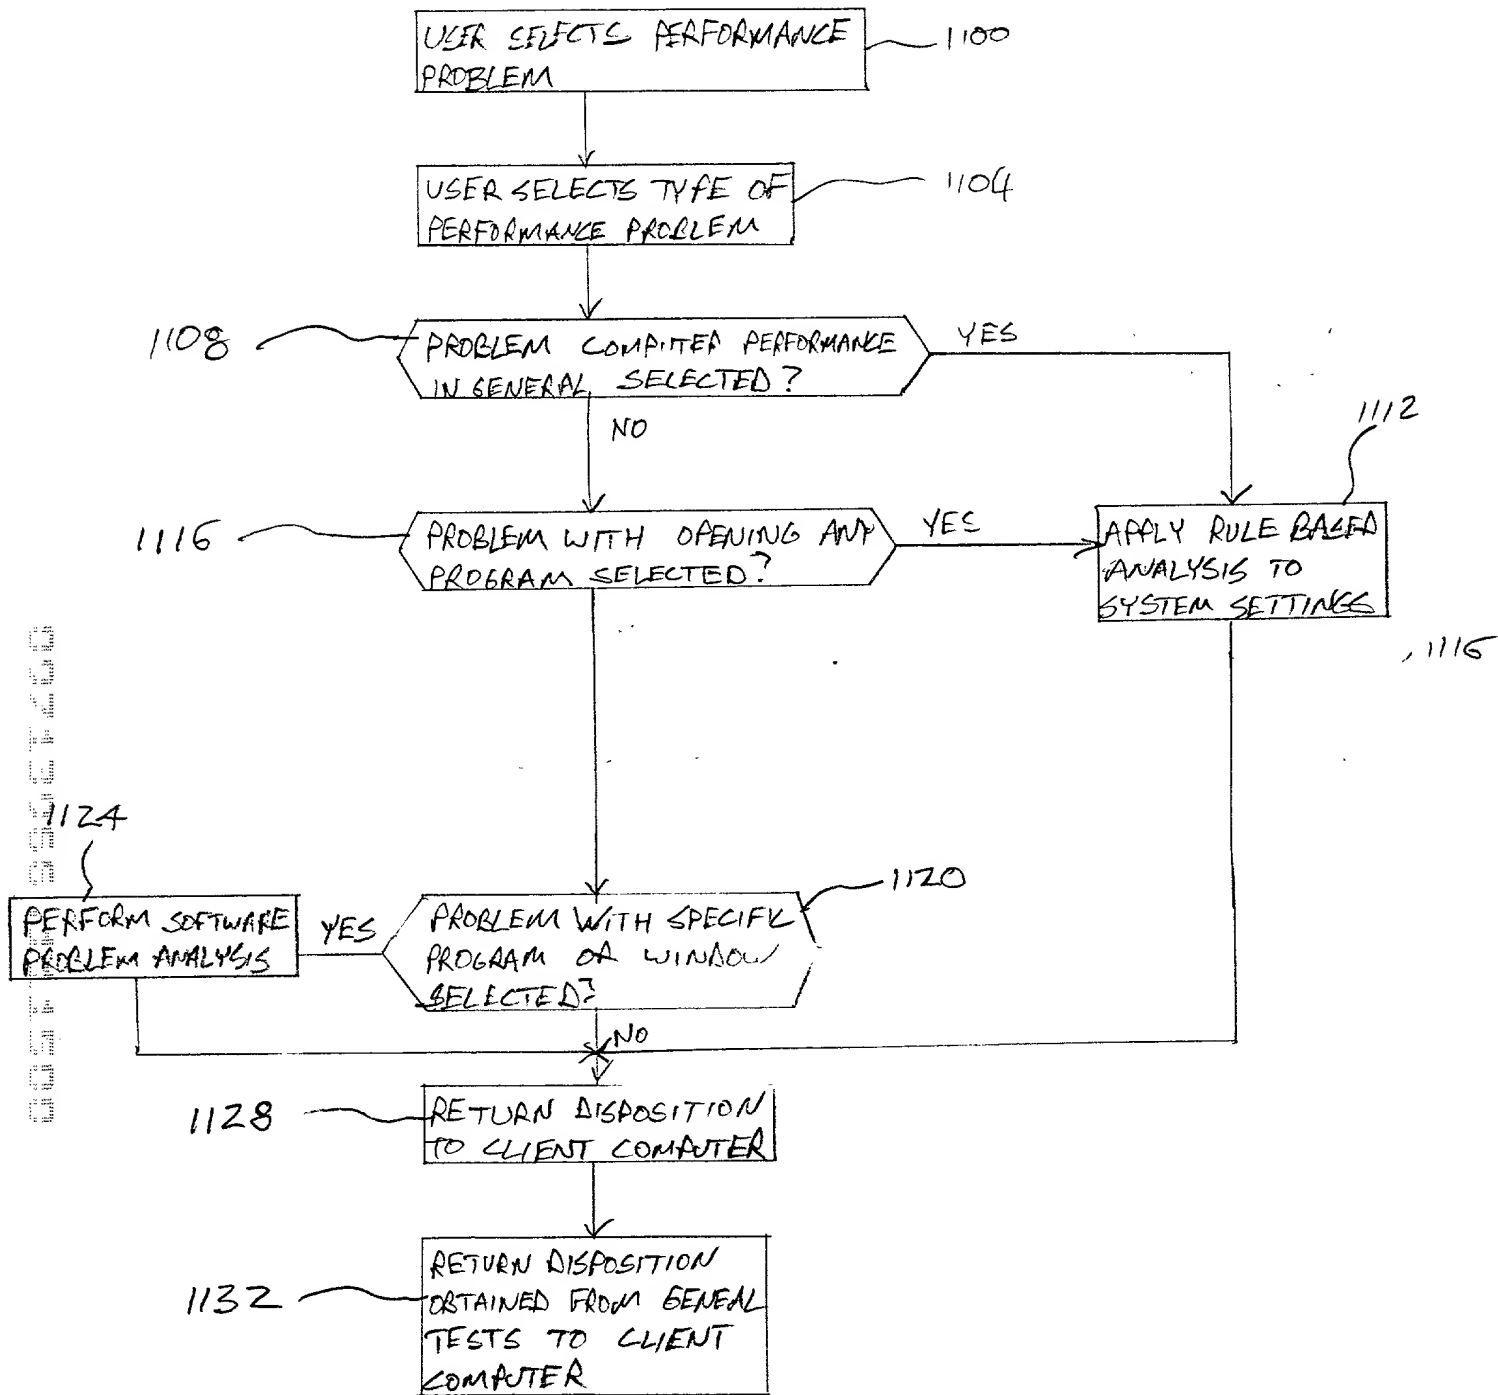 USER SELECTS PERFORMANCE
PROBLEM
1100
USER SELECTS TYPE OF
PERFORMANCE PROBLEM
1104
1108
PROBLEM COMPUTER PERFORMANCE
IN GENERAL SELECTED?
YES
NO
1112
1116
PROBLEM WITH OPENING ANY
PROGRAM SELECTED?
YES
APPLY RULE BASED
ANALYSIS TO
SYSTEM SETTINGS
1116
1124
PERFORM SOFTWARE
PROBLEM ANALYSIS
YES
PROBLEM WITH SPECIFIC
PROGRAM OR WINDOW
SELECTED?
1120
NO
1128
RETURN DISPOSITION
TO CLIENT COMPUTER
1132
RETURN DISPOSITION
OBTAINED FROM GENEAL
TESTS TO CLIENT
COMPUTER